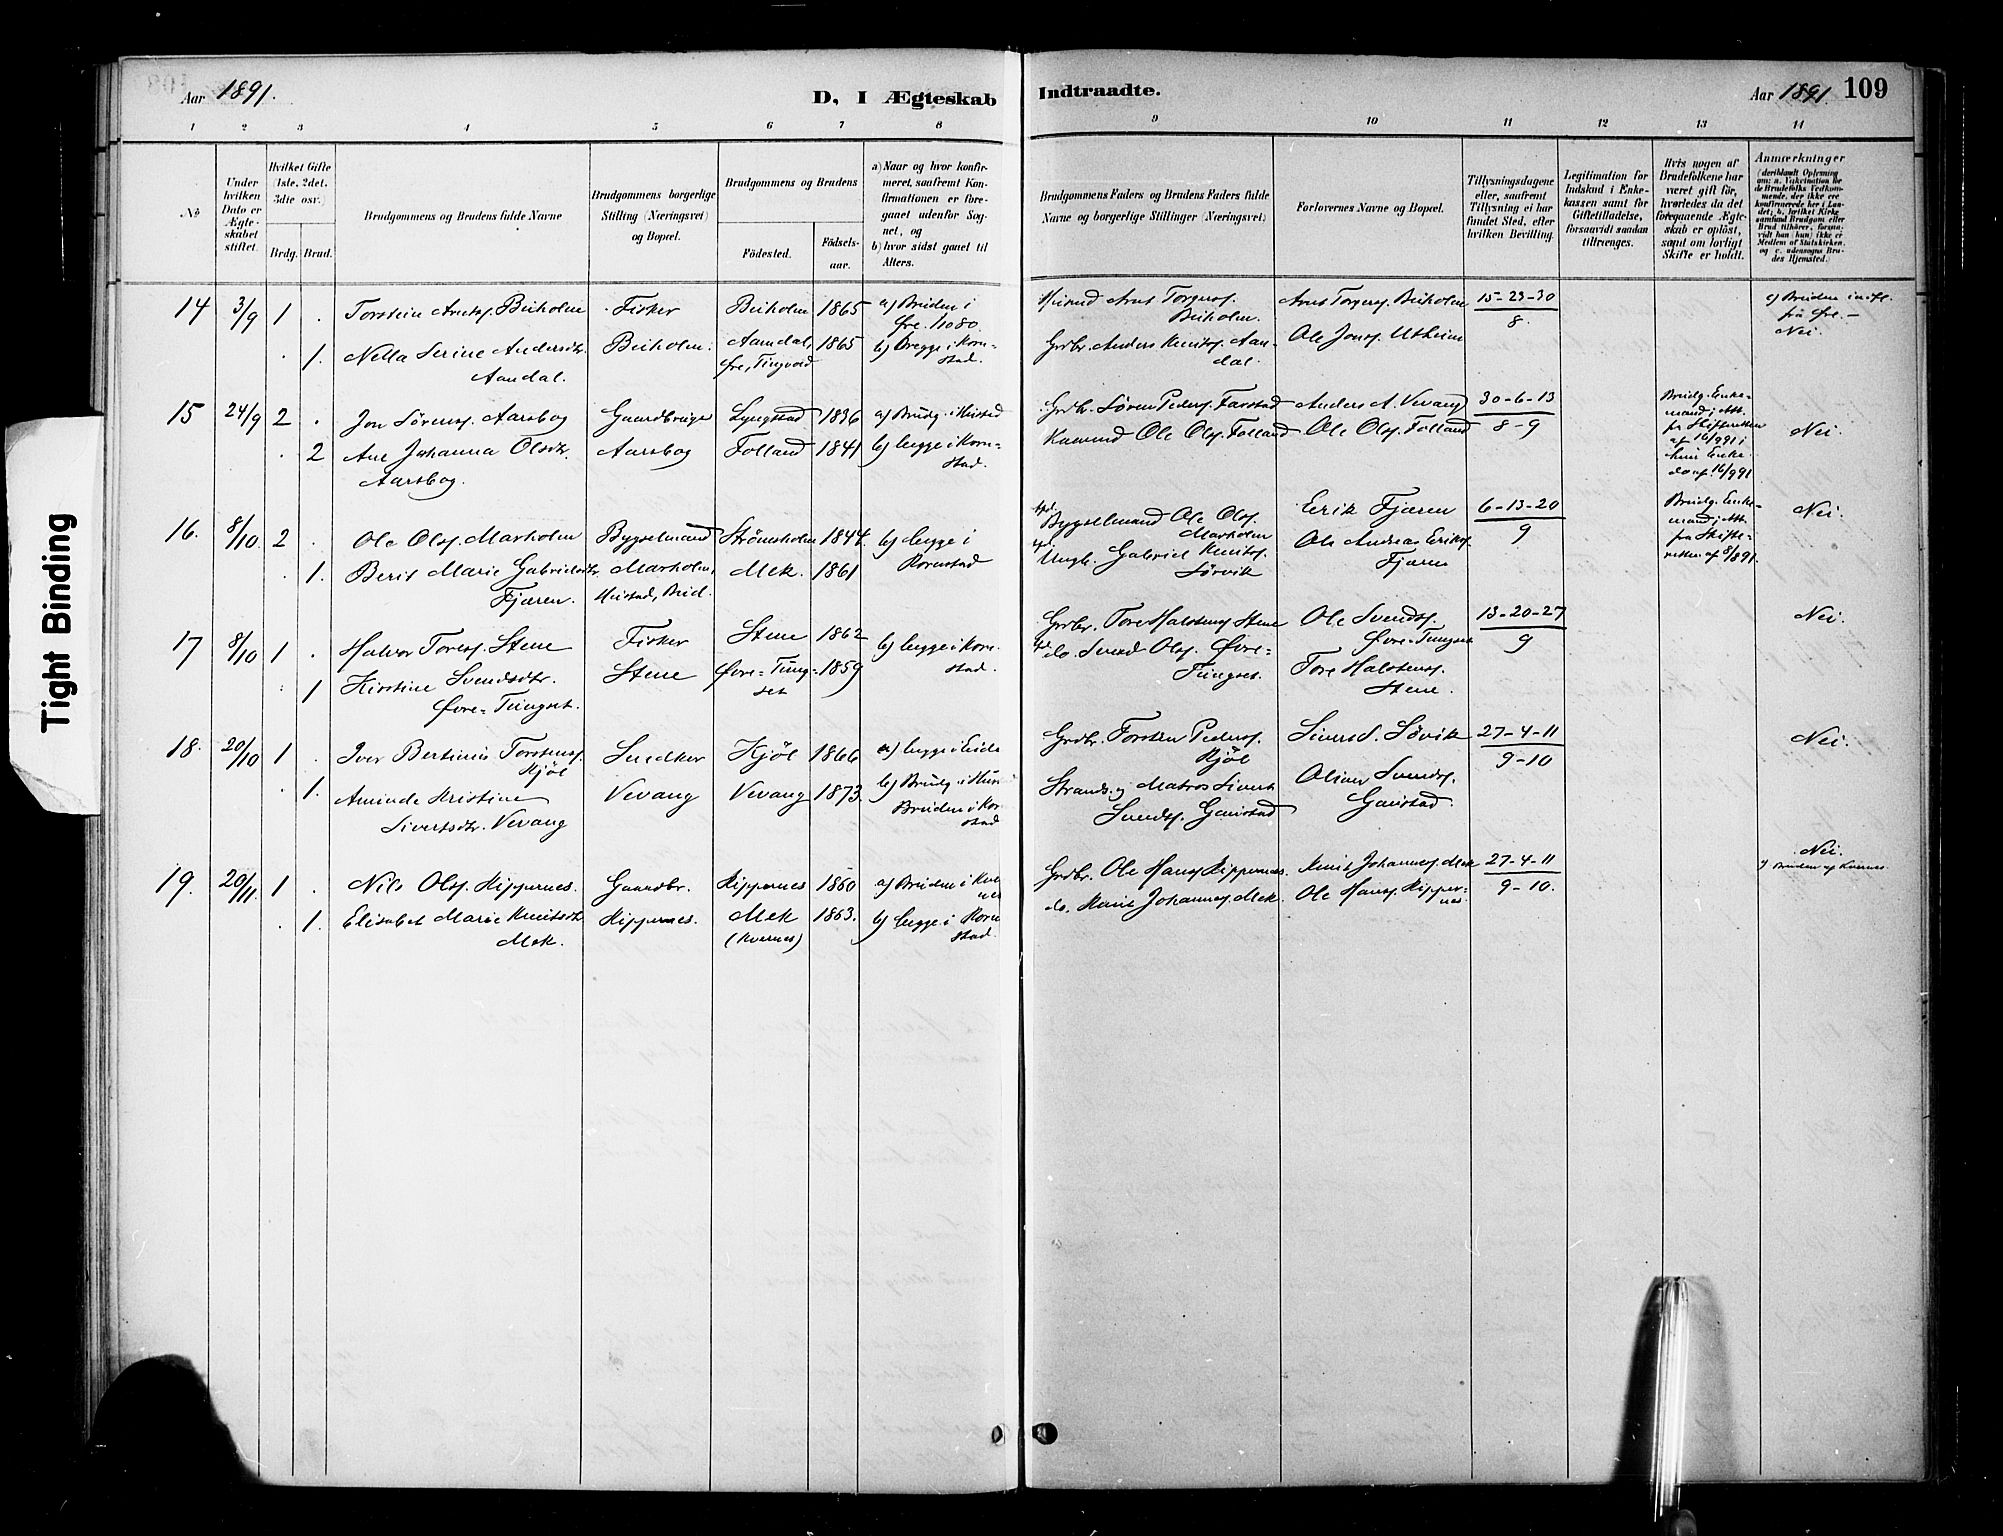 Aar 1891.
D, I Ægteskab
Indtraadte.
Aar 1891. 109
1 2 3 4 5 6 7 8 9 10 11 12 13 14
No
Under hvilken Dato er Ægteskabet stiftet.
Hvilket Gifte (1ste, 2det, 3die osv.)
Brdg. Brud.
Brudgommens og Brudens fulde Navne
Brudgommens borgerlige Stilling (Næringsvei) og Bopæl.
Brudgommens og Brudens
Födested. Födselsaar.
a) Naar og hvor konfirmeret, saafremt Konfirmationen er foregaaet udenfor Sognet, og
b) hvor sidst gaaet til Alters.
Brudgommens Faders og Brudens Faders fulde Navne og borgerlige Stillinger (Næringsvei)
Forlovernes Navne og Bopæl.
Tillysningsdagene eller, saafremt Tillysning ei har fundet Sted, efter hvilken Bevilling.
Legitimation for Indskud i Enkekassen samt for Giftetilladelse, forsaavidt saadan tiltrænges.
Hvis nogen af Brudefolkene har været gift før, hvorledes da det foregaaende Ægteskab er oplöst, samt om lovligt Skifte er holdt.
Anmærkninger
14 3/9 1 . Torstein Arntsf. Buholm Fisker Buholm 1865 a) Bruden i Øre. 11080. Husmd Arnt Torgersf. Buholm. Arnt Torgersf. Buholm 15-23-30 / 8. c) Bruden indfl. fra Øre.- Nei.
. 1. Nella Serine Andersdtr. Aandal. Buholm. Aamdal, Øre, Tingvold 1865 b) Begge i Kornstad. Grdbr. Anders Knutsf. Aandal. Ole Jonsf. Utheim
15 24/9 2 . Jon Sörensf. Aarsbog Gaardbruger Lyngstad 1836 a) Brudg. i Hustad Grdbr. Sören Pedersf. Farstad Anders A. Vevang 30-6-13 / 8-9 Brudg. Enkemand j. Att. fra Skifteretten af 16/991 i Nei.
. 2 Ane Johanna Olsdtr. Aarsbog. Aarsbog Folland 1841 b) begge i Kornstad. Kaarmd Ole Olsf. Folland Ole Olsf. Folland 16/991
16. 8/10. 2 . Ole Olsf. Marholm Bygselmand Strömsholm 1844. b) begge i Kornstad Bygselmand Ole Olsf. Marholm Erik Fjæren 6-13-20 / 9 Brudg. Enkemand j. Att. fra Skifteretten af 8/891. Nei.
. 1. Berit Marie Gabrielsdtr. Fjæren. Marholm, Hustad, Bud. Mek. 1861 Ungk. Gabriel Knutsf. Sörvik Ole Andreas Eriksf. Fjæren
17 8/10 1 . Halvor Toresf. Stene Fisker Stene 1862 b) begge i Kornstad. Grdbr. Tore Halstensf. Stene Ole Svendsf. Øvre-Tungset 13-20-27 / 9 Nei.
. 1 Kirstine Svendsdtr. Øvre-Tungset. Stene Øvre-Tungset 1859 do. Svend Olsf. Øvre-Tungset. Tore Halstensf. Stene.
18. 20/10 1 . Iver Bertinus Torstensf. Kjöl Snedker Kjöl 1866 a) begge i Eide Grdbr. Torsten Pedersf. Kjöl Sivert S. Sövik 27-4-11 / 9-10 Nei.
. 1. Aminde Kristine Sivertsdtr. Vevang Vevang Vevang 1873. b) Brudg. i Hus Bruden i Kornstad Strands. og Matros Sivert Svendsf. Gaustad Oliver Svendsf. Gaustad.
19. 20/11. 1 . Nils Olsf. Hippernes. Gaardbr. Hippernes 1860 a) Bruden i Kvernes Grdbr. Ole Hansf. Hippernes. Knut Johannesf. Mek 27-4-11 / 9-10. Nei. c) Bruden af Kvernes.
. 1. Elisabet Marie Knutsdtr. Mek. Hippernes. Mek (Kvernes) 1863. b) begge i Kornstad. do. Knut Johannesf. Mek. Ole Hansf. Hippernes.
Tight Binding